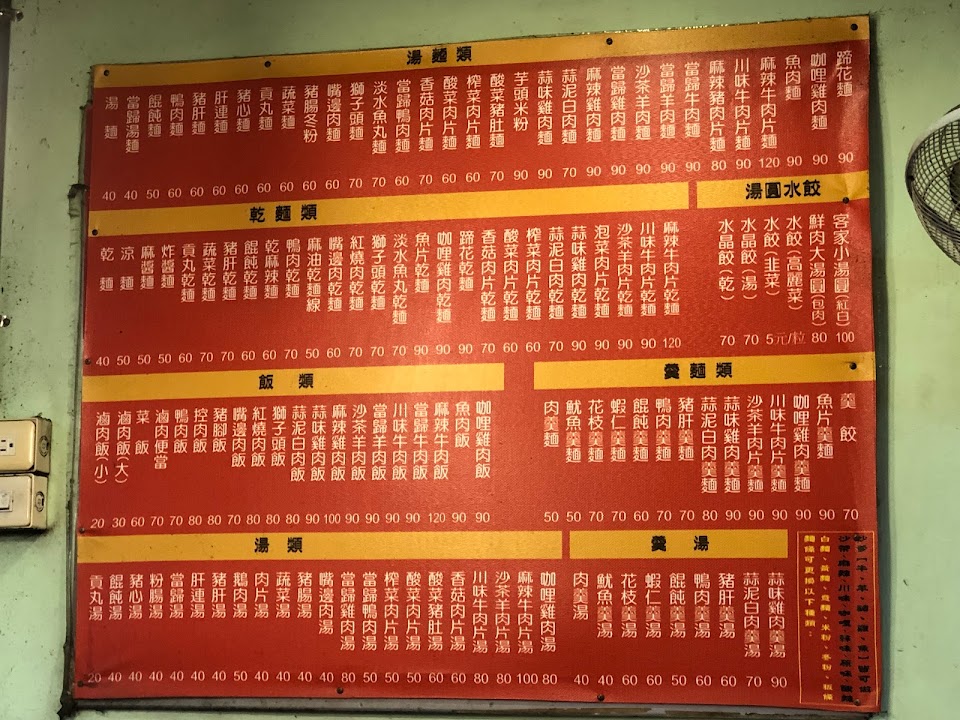 湯麵類
湯麵 40
當歸湯麵 40
餛飩麵 50
鴨肉麵 60
豬肝麵 60
肝連麵 60
豬心麵 60
貢丸麵 60
蔬菜麵 60
豬腸冬粉 60
嘴邊肉麵 60
獅子頭麵 70
淡水魚丸麵 70
當歸鴨肉麵 60
香菇肉片麵 70
酸菜肉片麵 60
榨菜肉片麵 60
酸菜豬肚麵 70
芋頭米粉 90
蒜味雞肉麵 90
蒜泥白肉麵 70
麻辣雞肉麵 90
當歸雞肉麵 90
沙茶羊肉麵 90
當歸羊肉麵 90
當歸牛肉麵 90
麻辣豬肉片麵 80
川味牛肉片麵 90
麻辣牛肉片麵 120
魚肉麵 90
咖哩雞肉麵 90
蹄花麵 90
乾麵類
乾麵 40
涼麵 50
麻醬麵 50
炸醬麵 50
貢丸乾麵 60
蔬菜乾麵 70
豬肝乾麵 70
餛飩乾麵 60
乾麻辣麵 60
鴨肉乾麵 70
麻油乾麵線 50
嘴邊肉乾麵 70
紅燒肉乾麵 70
獅子頭乾麵 70
淡水魚丸乾麵 70
魚片乾麵 90
咖哩雞肉乾麵 90
蹄花乾麵 90
香菇肉片乾麵 70
酸菜肉片乾麵 60
榨菜肉片乾麵 60
蒜泥白肉乾麵 70
蒜味雞肉乾麵 90
泡菜肉片乾麵 90
沙茶羊肉片乾麵 90
川味牛肉片乾麵 90
麻辣牛肉片乾麵 120
湯圓水餃
水晶餃(乾) 70
水晶餃(湯) 70
水餃(韭菜)
水餃(高麗菜)
5元/粒
鮮肉大湯圓(包肉) 80
客家小湯圓(紅白) 100
飯類
滷肉飯(小) 20
滷肉飯(大) 30
菜飯 60
滷肉便當 70
鴨肉飯 70
控肉飯 80
豬腳飯 80
嘴邊肉飯 70
紅燒肉飯 80
獅子頭飯 80
蒜泥白肉飯 80
蒜味雞肉飯 90
麻辣雞肉飯 100
沙茶羊肉飯 90
當歸羊肉飯 90
川味牛肉飯 90
當歸牛肉飯 90
麻辣牛肉飯 120
魚肉飯 90
咖哩雞肉飯 90
羹麵類
肉羹麵 50
魷魚羹麵 50
花枝羹麵 70
蝦仁羹麵 70
餛飩羹麵 60
鴨肉羹麵 70
豬肝羹麵 70
蒜泥白肉羹麵 80
蒜味雞肉羹麵 90
沙茶羊肉片羹麵 90
川味牛肉片羹麵 90
咖哩雞肉羹麵 90
魚片羹麵 90
羹餃 70
湯類
貢丸湯 20
餛飩湯 40
豬心湯 40
粉腸湯 40
當歸湯 80
肝連湯 40
豬肝湯 40
鵝肉湯 50
肉片湯 40
蔬菜湯 40
豬腸湯 40
嘴邊肉湯 40
當歸雞肉湯 80
當歸鴨肉湯 50
榨菜肉片湯 50
酸菜肉片湯 50
酸菜豬肚湯 60
香菇肉片湯 60
川味牛肉片湯 80
沙茶羊肉片湯 80
麻辣牛肉片湯 100
咖哩雞肉湯 80
羹湯
肉羹湯 40
魷魚羹湯 40
花枝羹湯 60
蝦仁羹湯 60
餛飩羹湯 50
鴨肉羹湯 60
豬肝羹湯 60
蒜泥白肉羹湯 70
蒜味雞肉羹湯 90
麵條可更換以下種類：
白麵、黃麵、意麵、米粉、冬粉、粄條